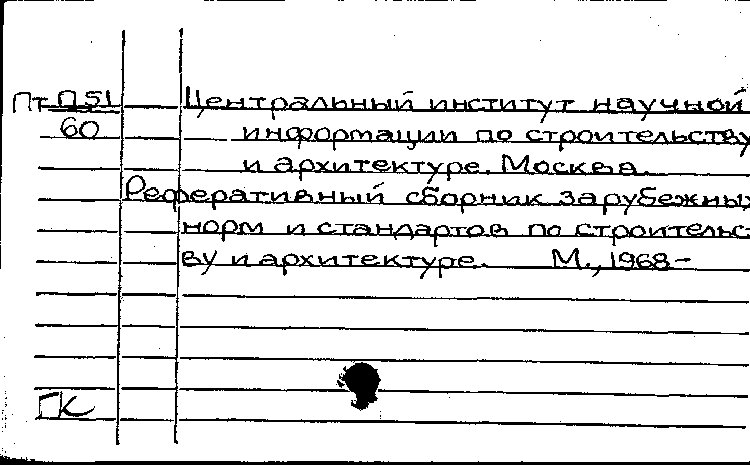 Пт П51 Центральный институт научной
60 информации по строительству
и архитектуре. Москва.
Реферативный сборник зарубежных
норм и стандартов по строительс
ву и архитектуре. М., 1968-
ГК